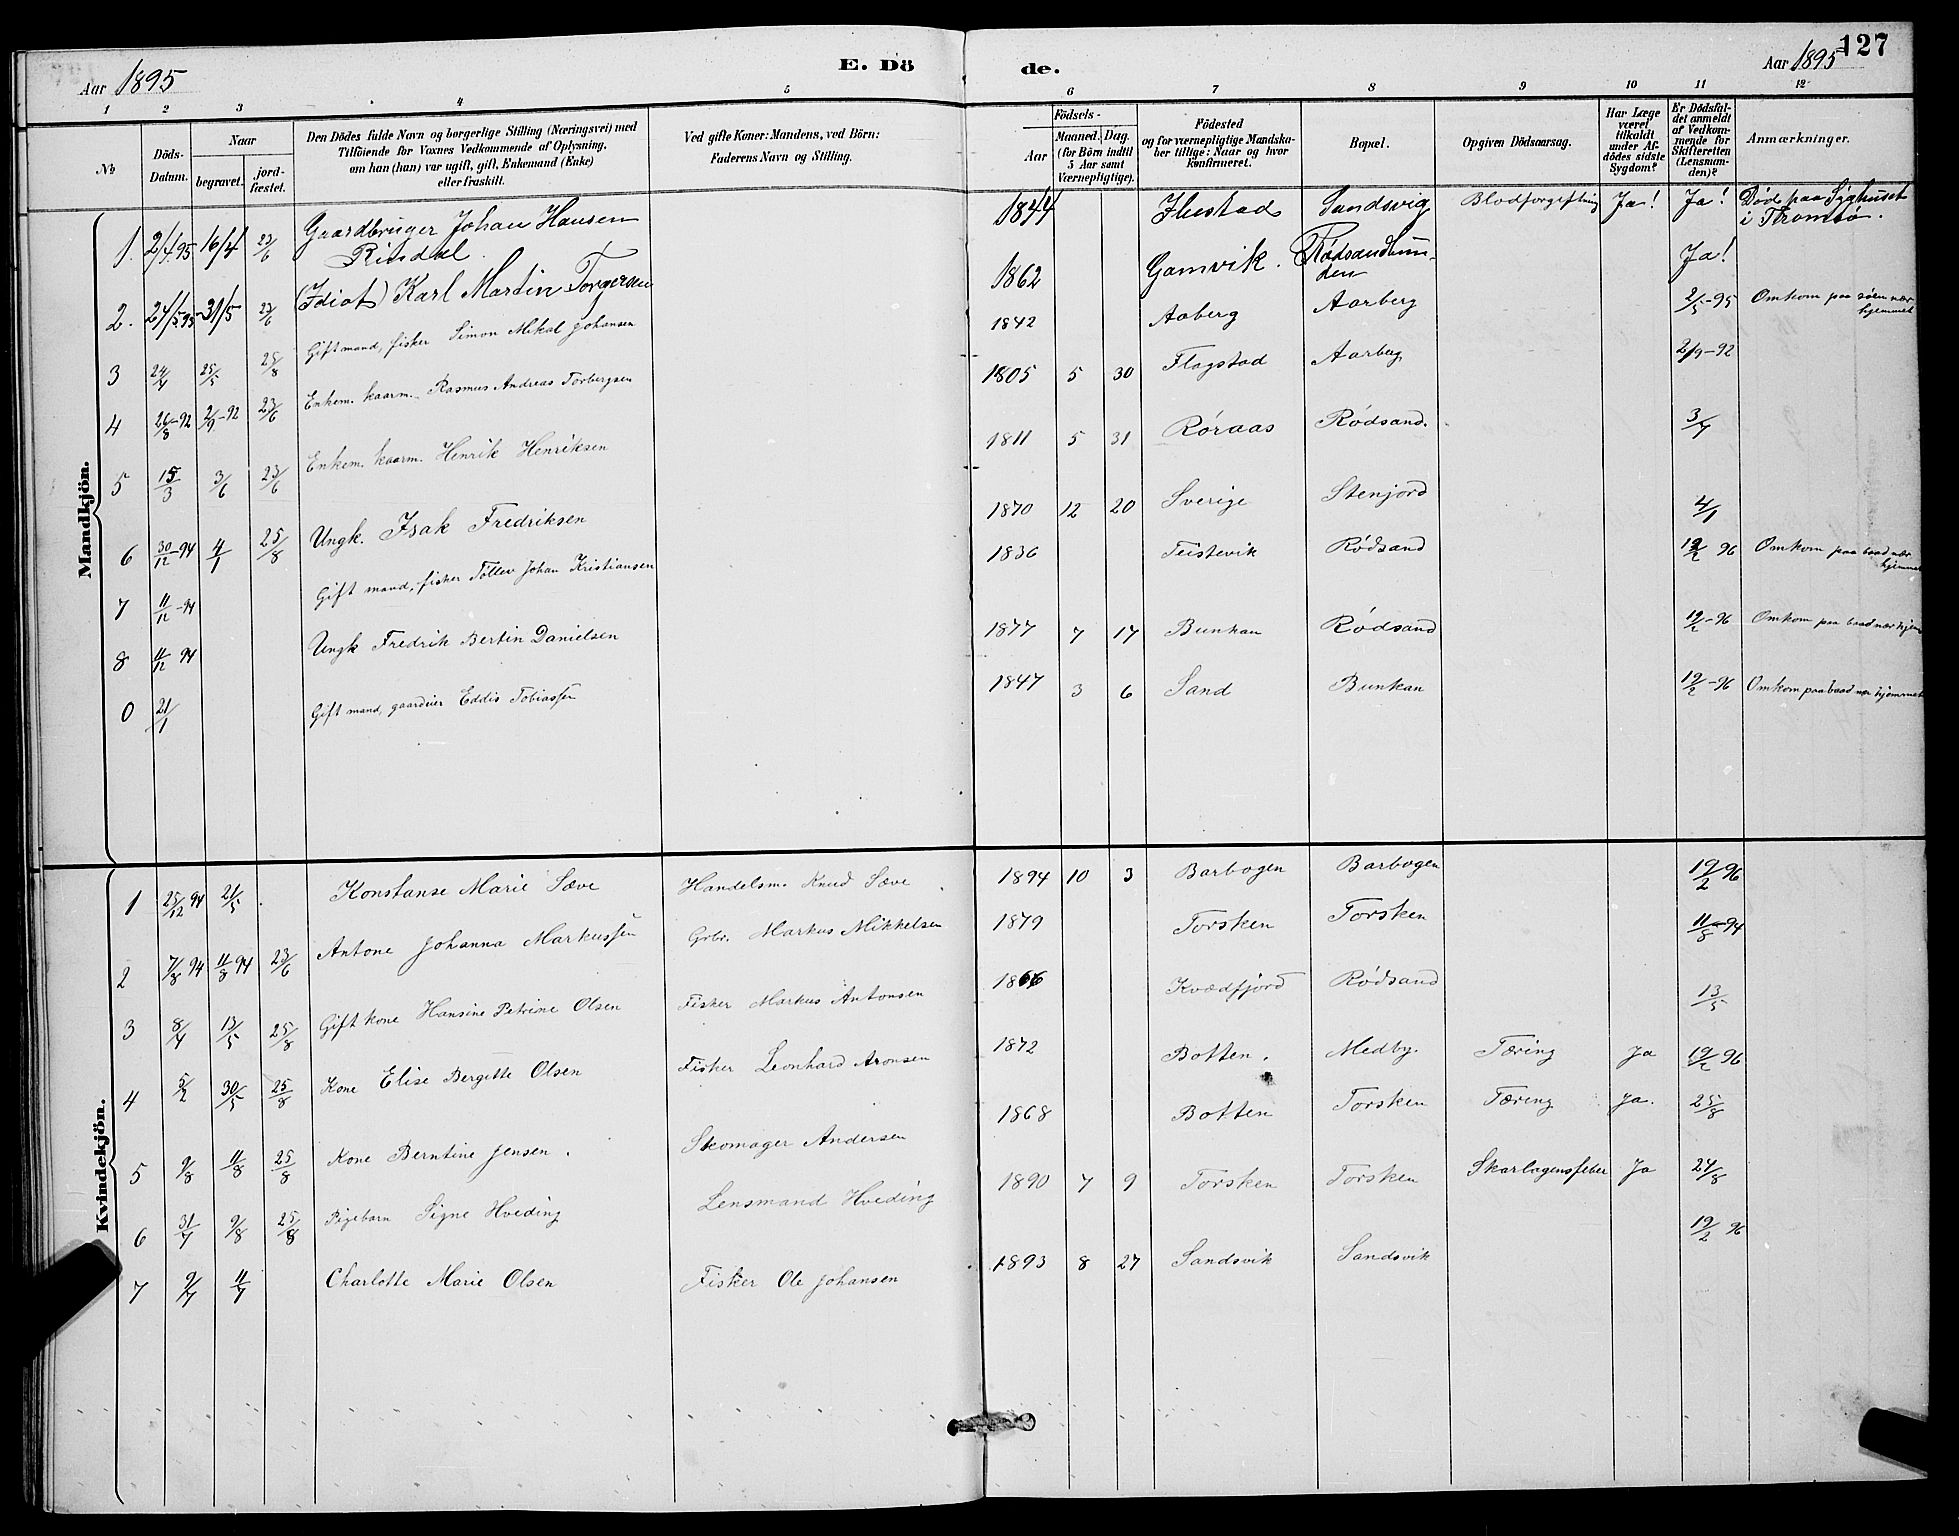 127
Aar 1895
E. Dö
de.
Aar 1895
1 2 3 4 5 6 7 8 9 10 11 12
No
Döds-Datum.
Naar
begravet.
jord-fæstet.
Den Dödes fulde Navn og borgerlige Stilling (Næringsvei) med
Tilföiende for Voxnes Vedkommende af Oplysning,
om han (hun) var ugift, gift, Enkemand (Enke)
eller fraskilt.
Ved gifte Koner: Mandens, ved Börn:
Faderens Navn og Stilling.
Födsels-
Aar
Maaned. Dag.
(for Börn indtil
5 Aar samt
Værnepligtige).
Födested
og for værnepligtige Mandska-
ber tillige: Naar og hvor
konfirmeret.
Bopæl.
Opgiven Dödsaarsag.
Har Læge
været
tilkaldt
under Af-
dödes sidste
Sygdom?
Er Dödsfal-
det anmeldt
af Vedkom-
mende for
Skifteretten
(Lensman-
den)?
Anmærkninger.
Mandkjön.
1. 2/4.95 16/4 23/6 Gaardbruger Johan Hansen Rindal. 1844 Sandsvig Blodforgiftning Ja! Ja! Død paa Syghuset i Tromsø.
2. 24/5 95 31/5 23/6 (Idiot) Karl Martin Torgersen 1862 Gamvik. Rødsandbunden Ja!
3 24/4 25/5 25/8 Gift mand, fisker Simon Mikal Johansen 1842 Aaberg Aarberg 2/5-95 Omkom paa søen nær hjemmet
4 26/8-92 2/9-92 23/6 Enkem. kaarm. Rasmus Andreas Torbergsen 1805 5 30 Flagstad Aarberg 2/9-92
5 15/3 3/6 23/6 Enkem. kaarm. Henrik Henriksen 1811 5 31 Røraas Rødsand. 3/4
6 30/12-94 4/1 25/8 Ungk. Isak Fredriksen 1870 12 20 Sverige Stenjord 4/1
7 11/12-94 Gift mand, fisker Tollev Johan Kristiansen 1836 Teistevik Rødsand 19/2 96 Omkom paa baad nær hjemmet
8 11/12 94 Ungk Fredrik Bertin Danielsen 1877 7 17 Bunkan Rødsand 19/2-96 Omkom paa baad nær hjem
0 21/1 Gift mand, gaardeier Eddis Tobiassen 1847 3 6 Sand Bunkan 19/2-96 Omkom paa baad nær hjemmet
Kvindekjön.
1 25/12 94 21/5 Konstanse Marie Sæve Handelsm. Knud Sæve 1894 10 3 Barbogen Barbogen 19/2 96
2 7/8 94 11/8 94 23/6 Antone Johanna Markussen Grbr. Markus Mikkelsen 1879 Torsken Torsken 11/8-94
3 8/4 13/5 25/8 Gift kone Hansine Petrine Olsen Fisker Markus Antonsen 1866 Kvædfjord Rødsand 13/5
4 5/2 30/5 25/8 Kone Elise Bergitte Olsen Fisker Leonhard Aronsen 1872 Botten. Medby. Tæring Ja 19/2 96
5 9/8 11/8 25/8 Kone Berntine Jensen. Skomager Andersen 1868 Botten Torsken Tæring Ja. 25/8
6 31/7 9/8 25/8 Pigebarn Signe Hveding Lensmand Hveding 1890 7 9 Torsken Torsken Skarlagensfeber Ja 24/8
7 9/7 11/7 Charlotte Marie Olsen Fisker Ole Johansen 1893 8 27 Sandsvik Sandsvik 19/2 96